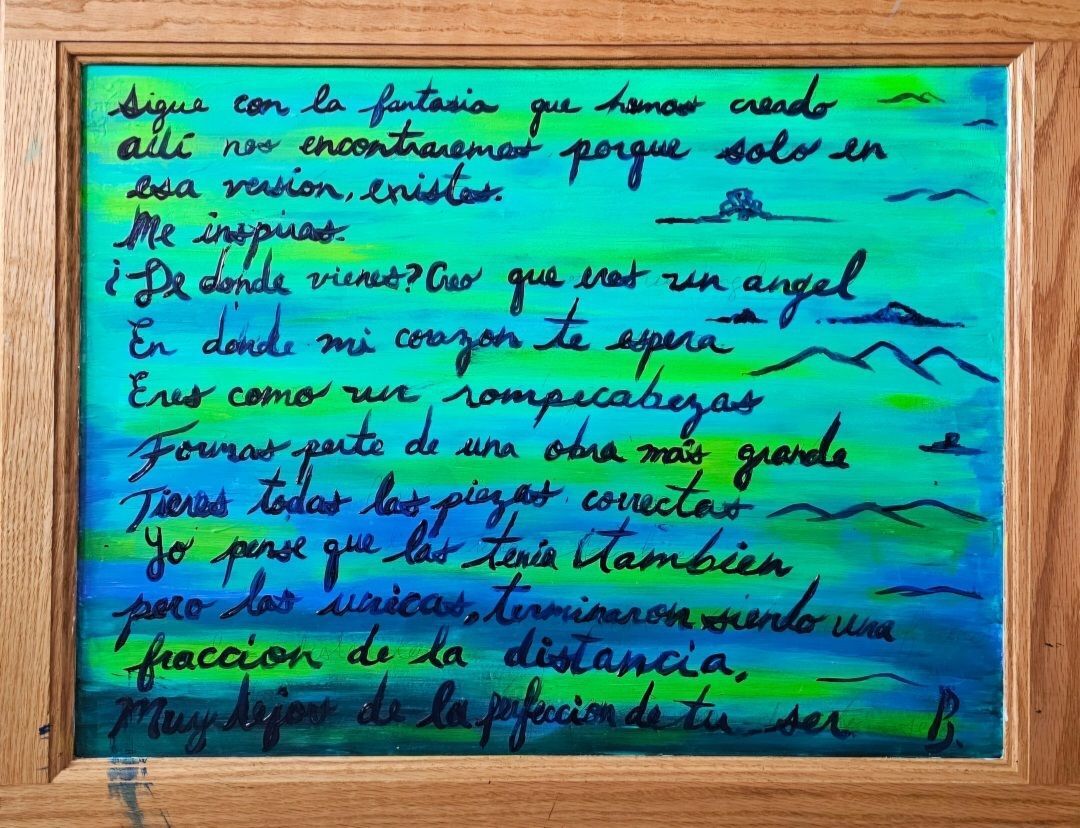 Sigue con la fantasia que hemos creado
allí nos encontraremos porque solo en
esa version, existes.
Me inspiras.
¿De donde vienes? Creo que eres un angel
En dónde mi corazon te espera
Eres como un rompecabezas
Formas parte de una obra más grande
Tienes todas las piezas correctas
Yo pense que las tenía tambien
pero las unicas, terminaron siendo una
fraccion de la distancia,
Muy lejos de la perfeccion de tu ser B.